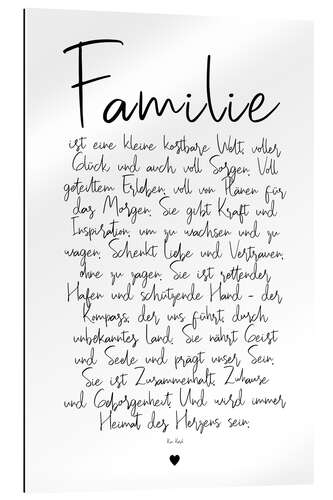 Familie
ist eine kleine kostbare Welt, voller
Glück und auch voll Sorgen. Voll
geteiltem Erleben, voll von Plänen für
das Morgen. Sie gibt Kraft und
Inspiration, um zu wachsen und zu
wagen. Schenkt Liebe und Vertrauen,
ohne zu zagen. Sie ist rettender
Hafen und schützende Hand - der
Kompass, der uns führt, durch
unbekanntes Land. Sie nährt Geist
und Seele und prägt unser Sein.
Sie ist Zusammenhalt, Zuhause
und Geborgenheit. Und wird immer
Heimat des Herzens sein.